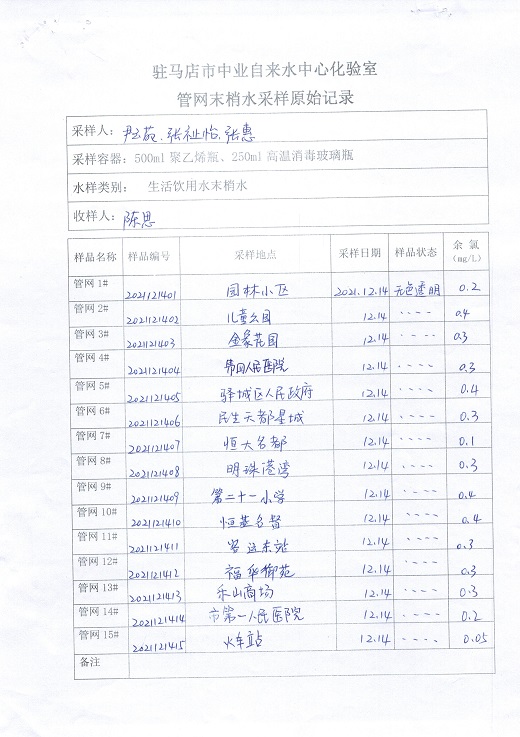 驻马店市中业自来水中心化验室
管网末梢水采样原始记录
采样人: 张祉怡、张惠
采样容器: 500ml 聚乙烯瓶、250ml 高温消毒玻璃瓶
水样类别: 生活饮用水末梢水
收样人: 陈思
样品名称 样品编号 采样地点 采样日期 样品状态 余氯 (mg/L)
管网 1# 2021121401 园林小区 2021.12.14 无色透明 0.2
管网 2# 2021121402 儿童公园 12.14 ---- 0.4
管网 3# 2021121403 金象花园 12.14 ---- 0.3
管网 4# 2021121404 人民医院 12.14 ---- 0.3
管网 5# 2021121405 驿城区人民政府 12.14 ---- 0.4
管网 6# 2021121406 民生天都星城 12.14 ---- 0.3
管网 7# 2021121407 恒大名都 12.14 ---- 0.1
管网 8# 2021121408 明珠港湾 12.14 ---- 0.3
管网 9# 2021121409 第二十一小学 12.14 ---- 0.4
管网 10# 2021121410 恒基名督 12.14 ---- 0.4
管网 11# 2021121411 客运东站 12.14 ---- 0.3
管网 12# 2021121412 福华御苑 12.14 ---- 0.3
管网 13# 2021121413 乐山商场 12.14 ---- 0.3
管网 14# 2021121414 市第一人民医院 12.14 ---- 0.2
管网 15# 2021121415 火车站 12.14 ---- 0.05
备注